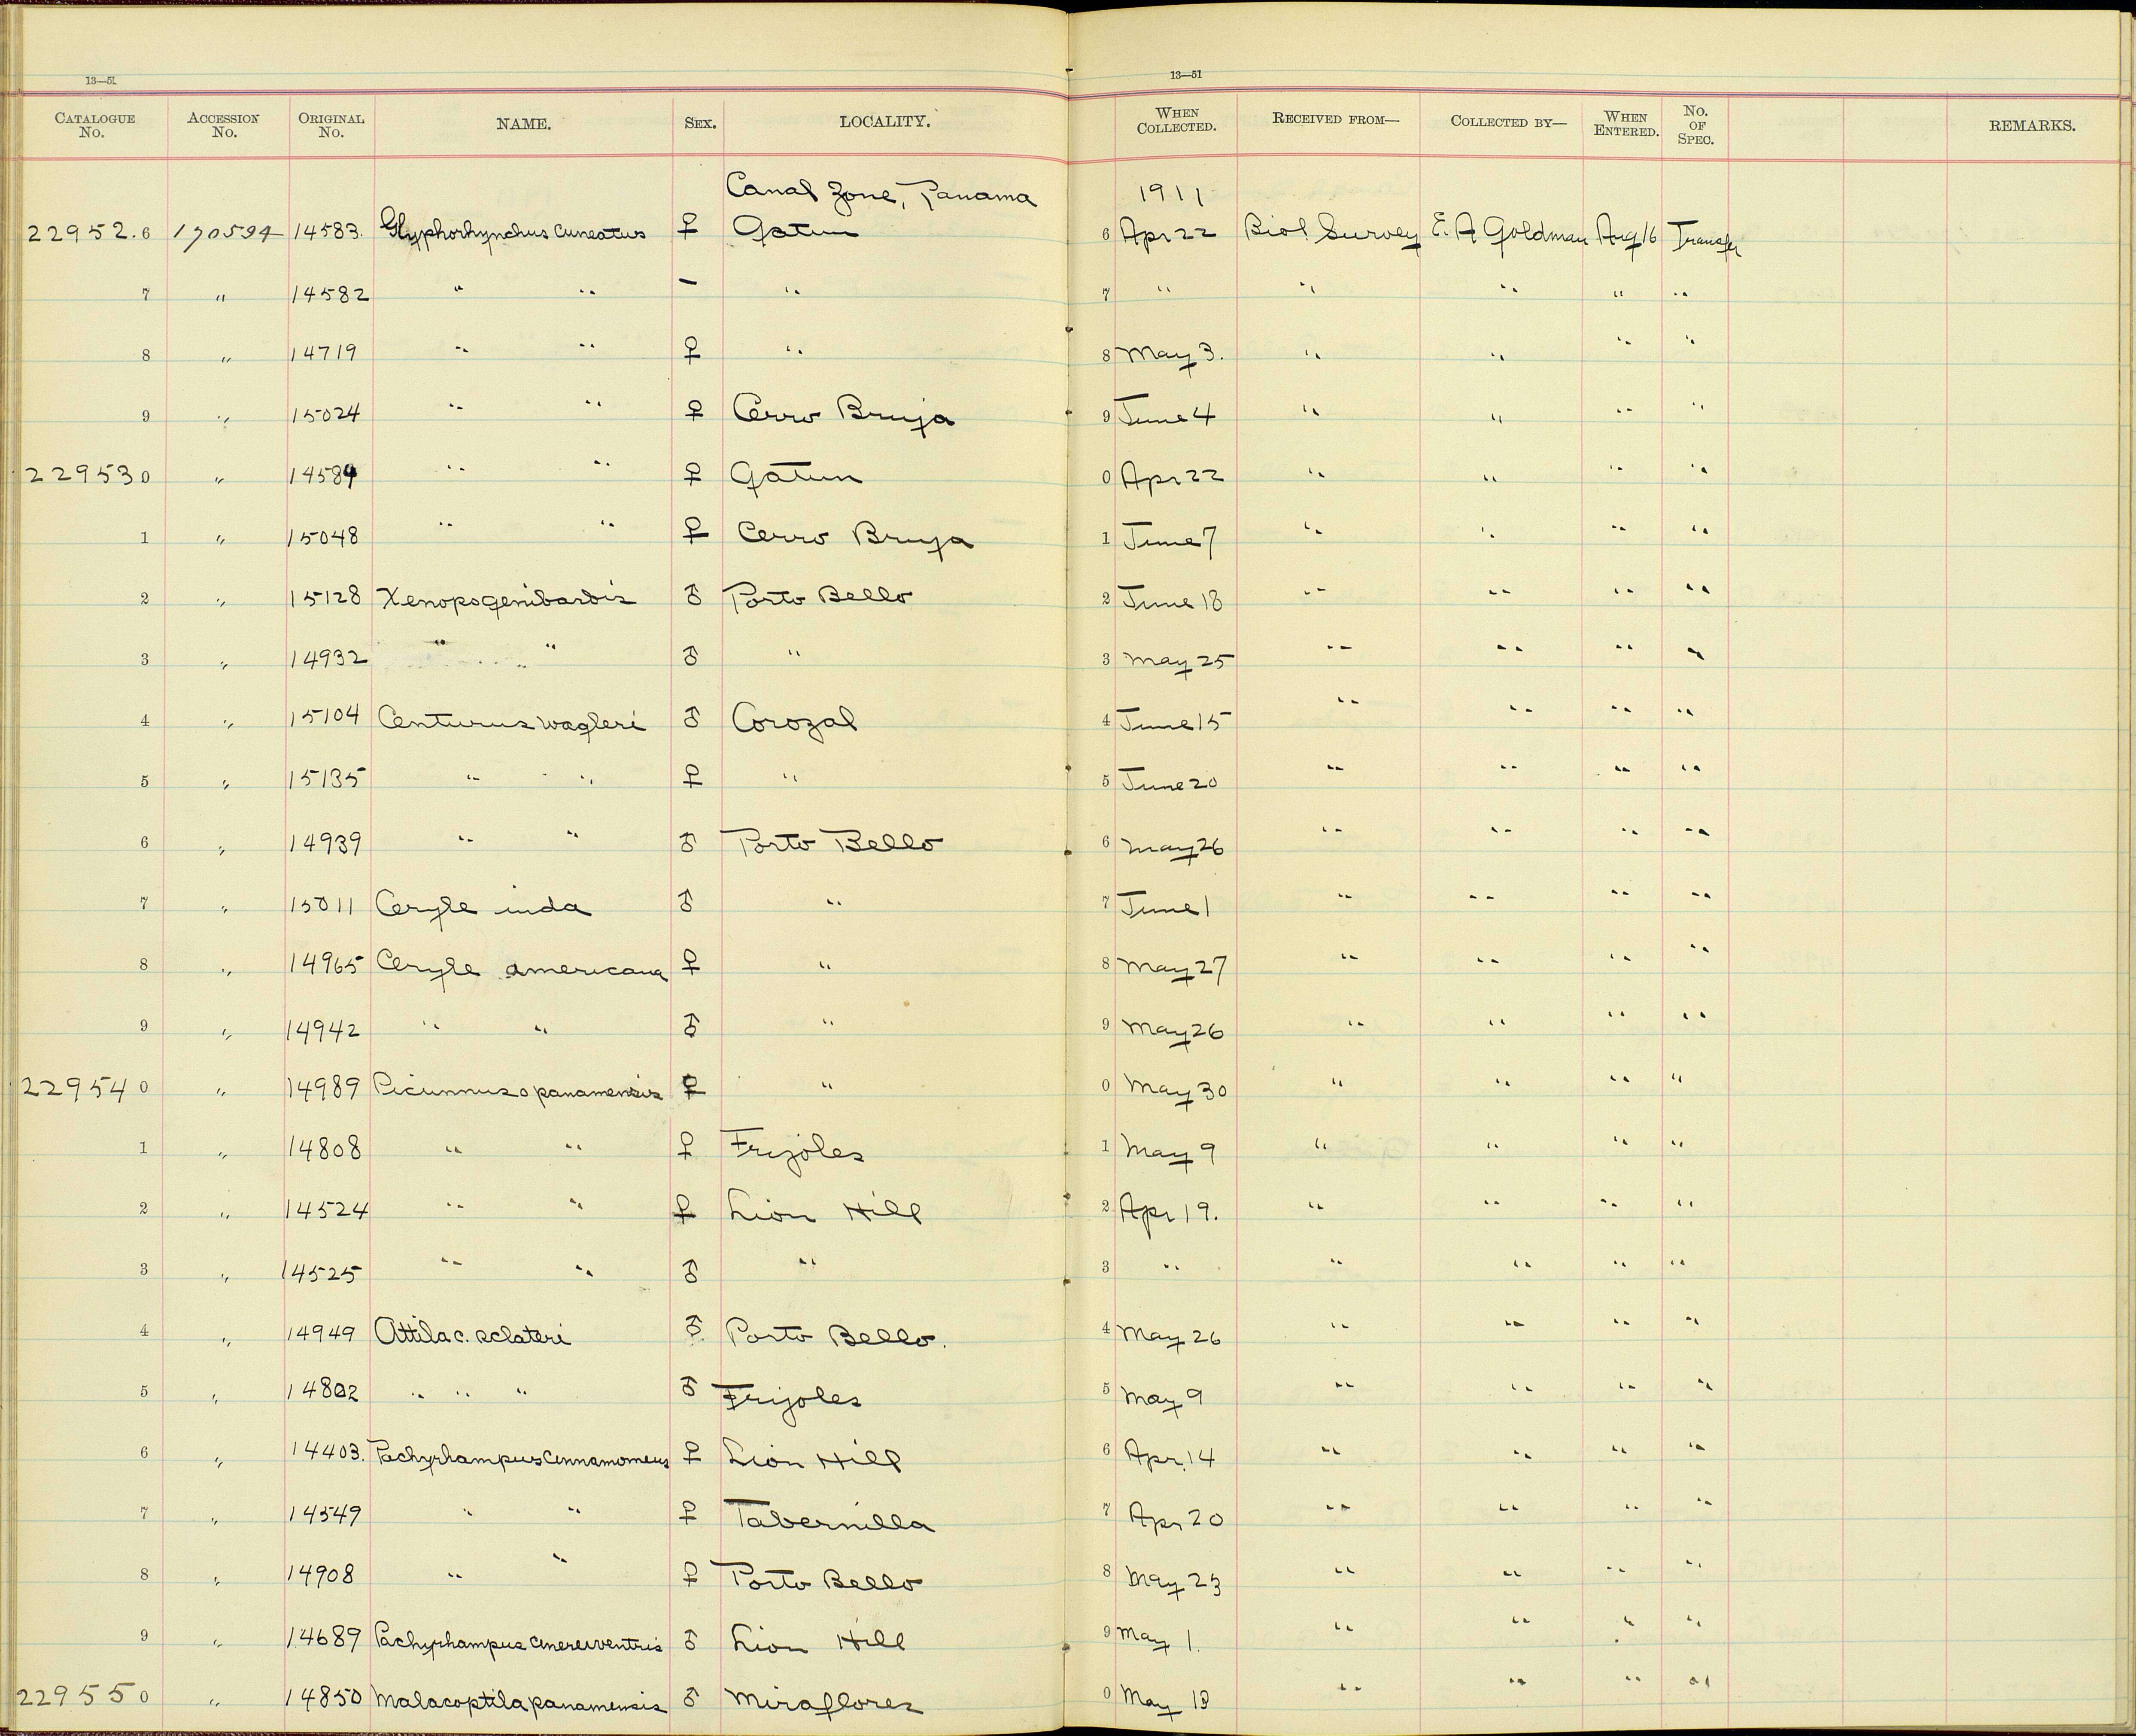 13—51
13—51
CATALOGUE No. ACCESSION No. ORIGINAL No. NAME. SEX. LOCALITY. WHEN COLLECTED. RECEIVED FROM— COLLECTED BY— WHEN ENTERED. No. OF SPEC. REMARKS.
Canal Zone, Panama 1911
22952.6 170594 14583. Glyphorhynchus cuneatus ♀ Gatun 6 Apr 22 Biol Survey E. A Goldman Aug 16 Transfer
7 " 14582 " " – " 7 " " " " "
8 " 14719 " " ♀ " 8 May 3. " " " "
9 " 15024 " " ♀ Cerro Bruja 9 June 4 " " " "
229530 " 14584 " " ♀ Gatun 0 Apr 22 " " " "
1 " 15048 " " ♀ Cerro Bruja 1 June 7 " " " "
2 " 15128 Xenops genibarbis ♂ Porto Bello 2 June 18 " " " "
3 " 14932 " " ♂ " 3 May 25 " " " "
4 " 15104 Centurus wagleri ♂ Corozal 4 June 15 " " " "
5 " 15135 " " ♀ " 5 June 20 " " " "
6 " 14939 " " ♂ Porto Bello 6 May 26 " " " "
7 " 15011 Ceryle inda ♂ " 7 June 1 " " " "
8 " 14965 Ceryle americana ♀ " 8 May 27 " " " "
9 " 14942 " " ♂ " 9 May 26 " " " "
229540 " 14989 Picumnus o panamensis ♀ " 0 May 30 " " " "
1 " 14808 " " ♀ Frijoles 1 May 9 " " " "
2 " 14524 " " ♀ Lion Hill 2 Apr 19. " " " "
3 " 14525 " " ♂ " 3 " " " " "
4 " 14949 Attila c. sclateri ♂ Porto Bello. 4 May 26 " " " "
5 " 14802 " " " ♂ Frijoles 5 May 9 " " " "
6 " 14403. Pachyrhampus cinnamomeus ♀ Lion Hill 6 Apr. 14 " " " "
7 " 14549 " " ♀ Tabernilla 7 Apr 20 " " " "
8 " 14908 " " ♀ Porto Bello 8 May 23 " " " "
9 " 14689 Pachyrhampus cinereiventris ♂ Lion Hill 9 May 1. " " " "
229550 " 14850 Malacoptila panamensis ♂ Miraflores 0 May 13 " " " "